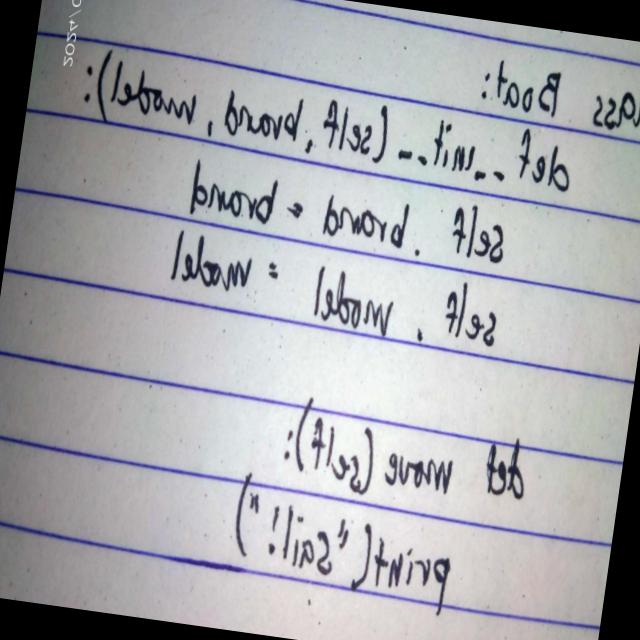 class Boat:
def __init__(self, brand, model):
self.brand = brand
self.model = model
def move(self):
print("Sail!")